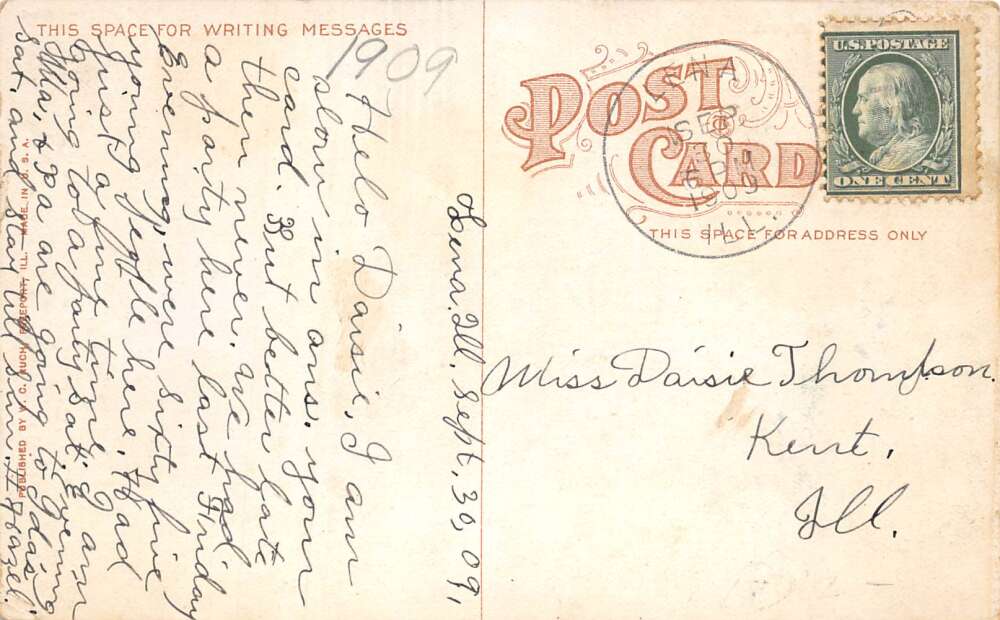 THIS SPACE FOR WRITING MESSAGES
1909
Lena. Ill. Sept. 30, 09,
Helo Daisie, I am
slow in ans. your
card. But better late
then never. We had
a party here last Friday
Evening, were sixty five
young people here. Had
just a fine time. I am
going to a party sat. evening
Ma, & Pa are going to Ida's
sat, and stay till sun. Hazel.
PUBLISHED BY W. C. FREEPORT, ILL. MADE IN U. S. A.
POST CARD
LENA
SEP
30
6 PM
1909
ILL.
U.S. POSTAGE
ONE CENT
THIS SPACE FOR ADDRESS ONLY
Miss Daisie Thompson.
Kent.
Ill.